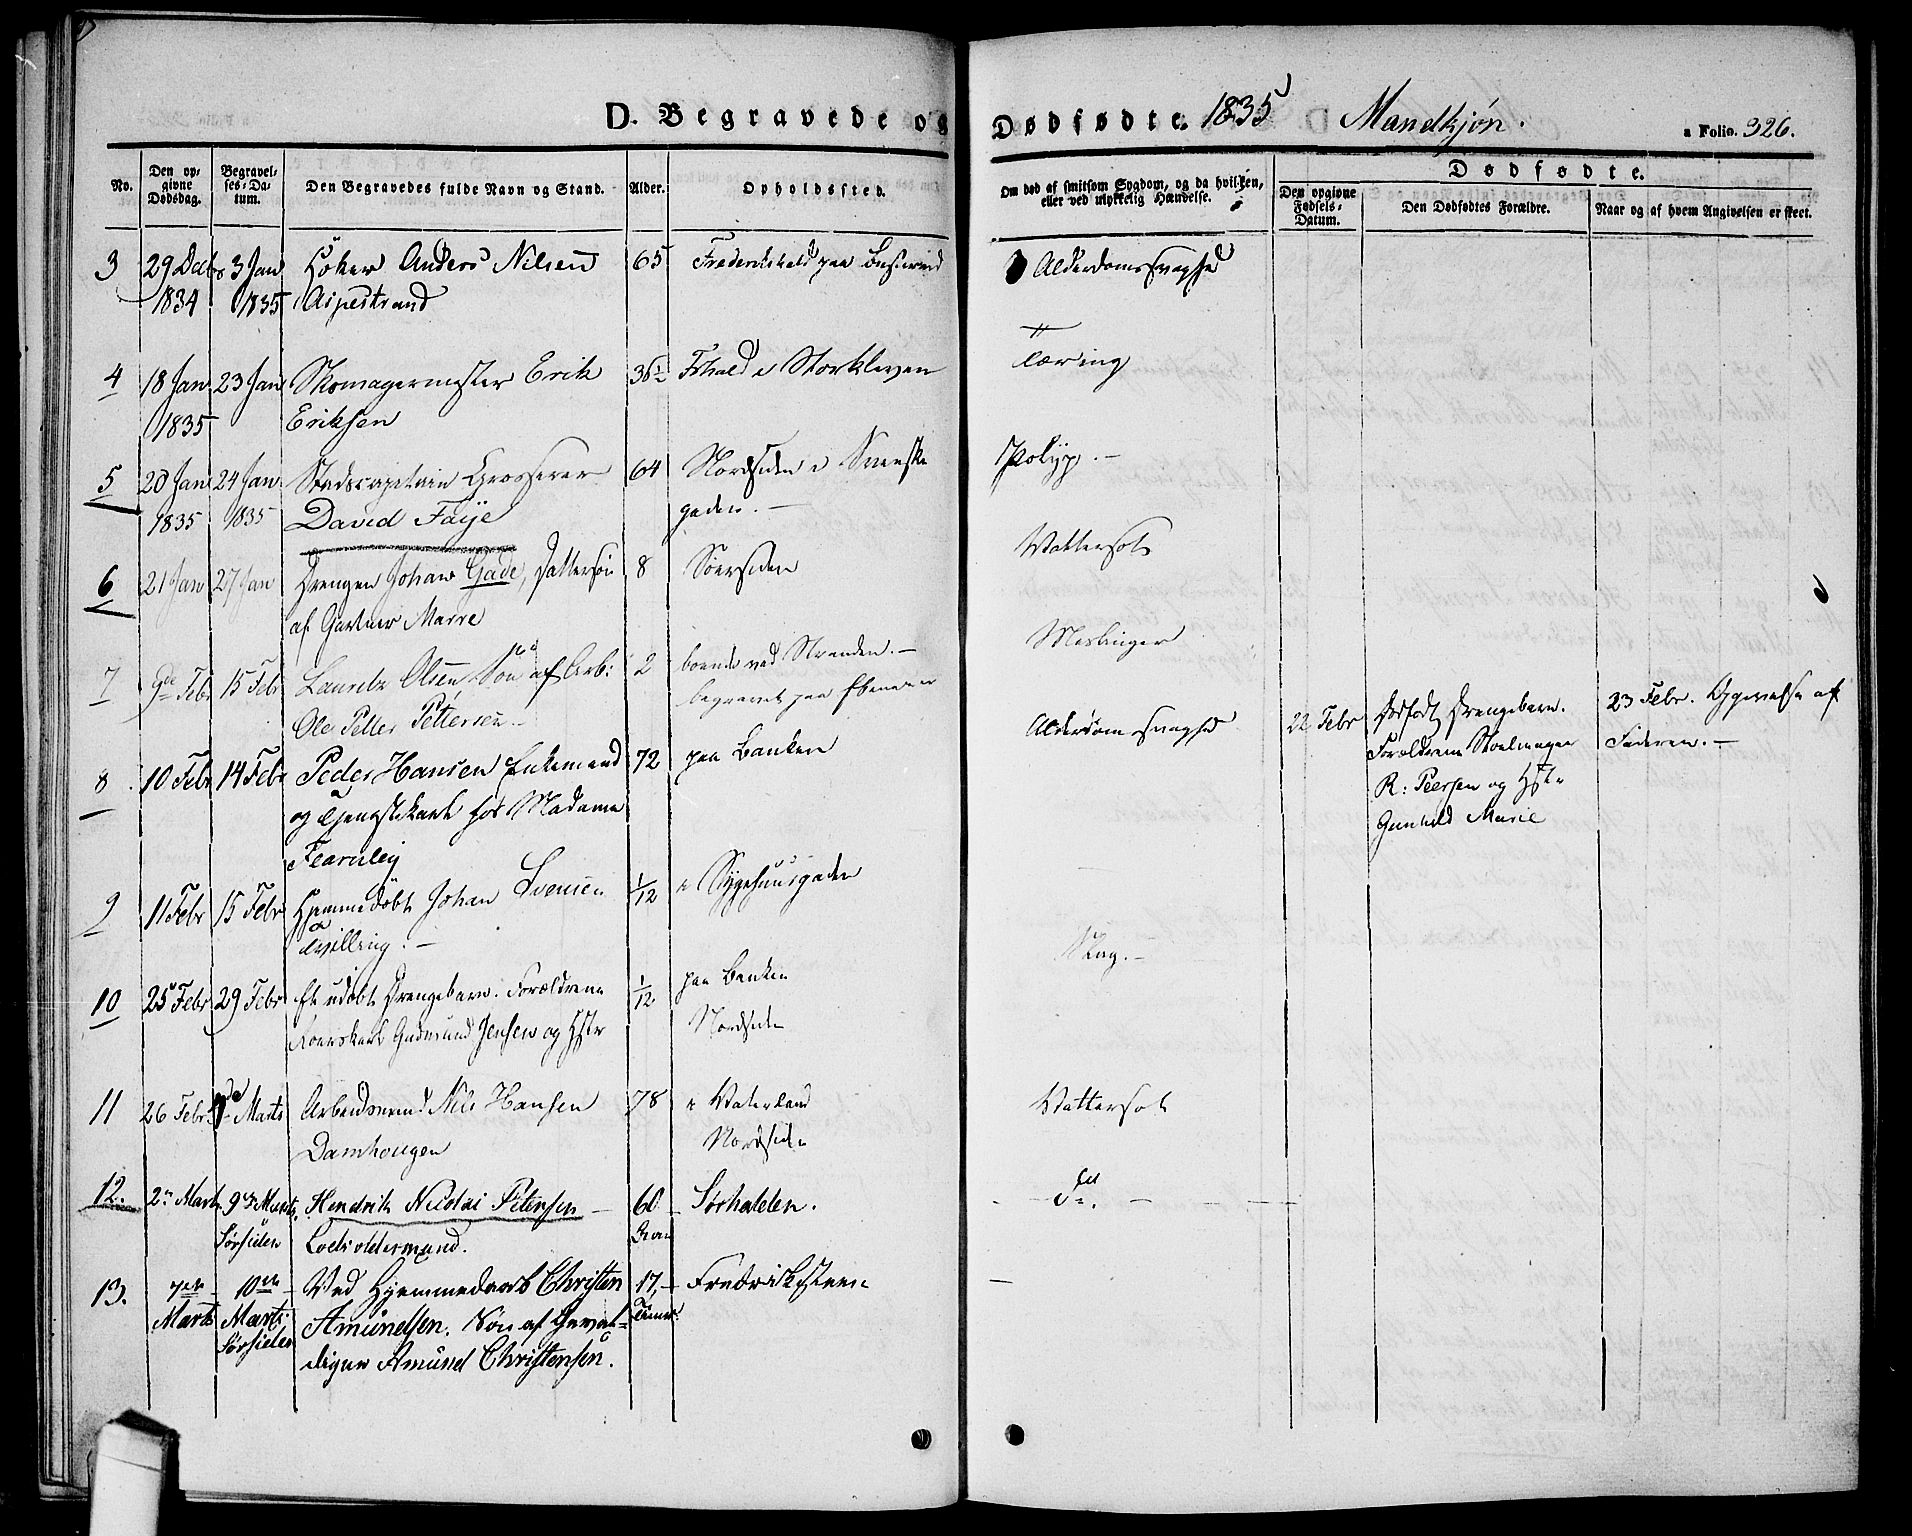 D. Begravede og
Dødfødte. 1835 D. Mandkjøn.
a Folio. 326.
No.
Den op-
givne
Dødsdag.
Begravel-
ses-Da-
tum.
Den Begravedes fulde Navn og Stand.
Alder.
Opholdssted.
Om død af smitsom Sygdom, og da hvilken,
eller ved ulykkelig Hændelse.
Dødfødte.
Den opgivne
Fødsels-
Datum.
Den Dødfødtes Forældre.
Naar og af hvem Angivelsen er skeet.
3 29 Dcbr 3 Jan Höker Anders Nilsen 65 Frederikshald paa Alderdomssvaghed
1834 1835 Aspestrand
4 18 Jan 23 Jan Skomagermester Erik 36½ Fhald i Storkleven Tæring
1835 Eriksen
5 20 Jan 24 Jan Stadscapitain Grosserer 64 Nordsiden i Svenske Polyp. –
1835 1835 David Faye gaden. –
6 21 Jan 27 Jan Drengen Johan Gade, Dattersön 8 Sörsiden Vattersot
af Gartner Marre
7 9de Febr 15 Febr Laurits Olsen Sön af Arb: 2 boende ved Stranden. – Meslinger
Ole Petter Pettersen begravet paa
8 10 Febr 14 Febr Peder Hansen Enkemand 72 paa Banken Alderdomssvaghed
og Tjenestekarl hos Madame
Fearnley
22 Febr Dødfødt Drengebarn. 23 Febr. Opgivelse af
Forældrene Stoelmager Faderen. –
R: Peersen og Hstr
Gunhild Marie
9 11 Febr 15 Febr Hjemmedöbt Johan Svensen 1/12 i Sygehuusgaden
Tvilling. –
10 25 Febr 29 Febr Et udöbt Drengebarn. Forældrene 1/12 paa Banken Slag. –
Roerskarl Gudmund Jensen og Hstr Nordsiden
11 26 Febr Marts Arbeidsmand Nils Hansen 78 i Vaterland Vattersot
Damhougen Nordsiden
12. 2n Marts 9de Marts. Hendrik Nicolai Petersen – 60 Sørhalden.
Sørsiden Lodsoldermand.
13. 7de 10de – Ved Hjemmedaab Christen 17, – Fredriksteen
Marts Marts. Amundsen. Søn af Geval- Timer
Sørsiden diger Amund Christensen.